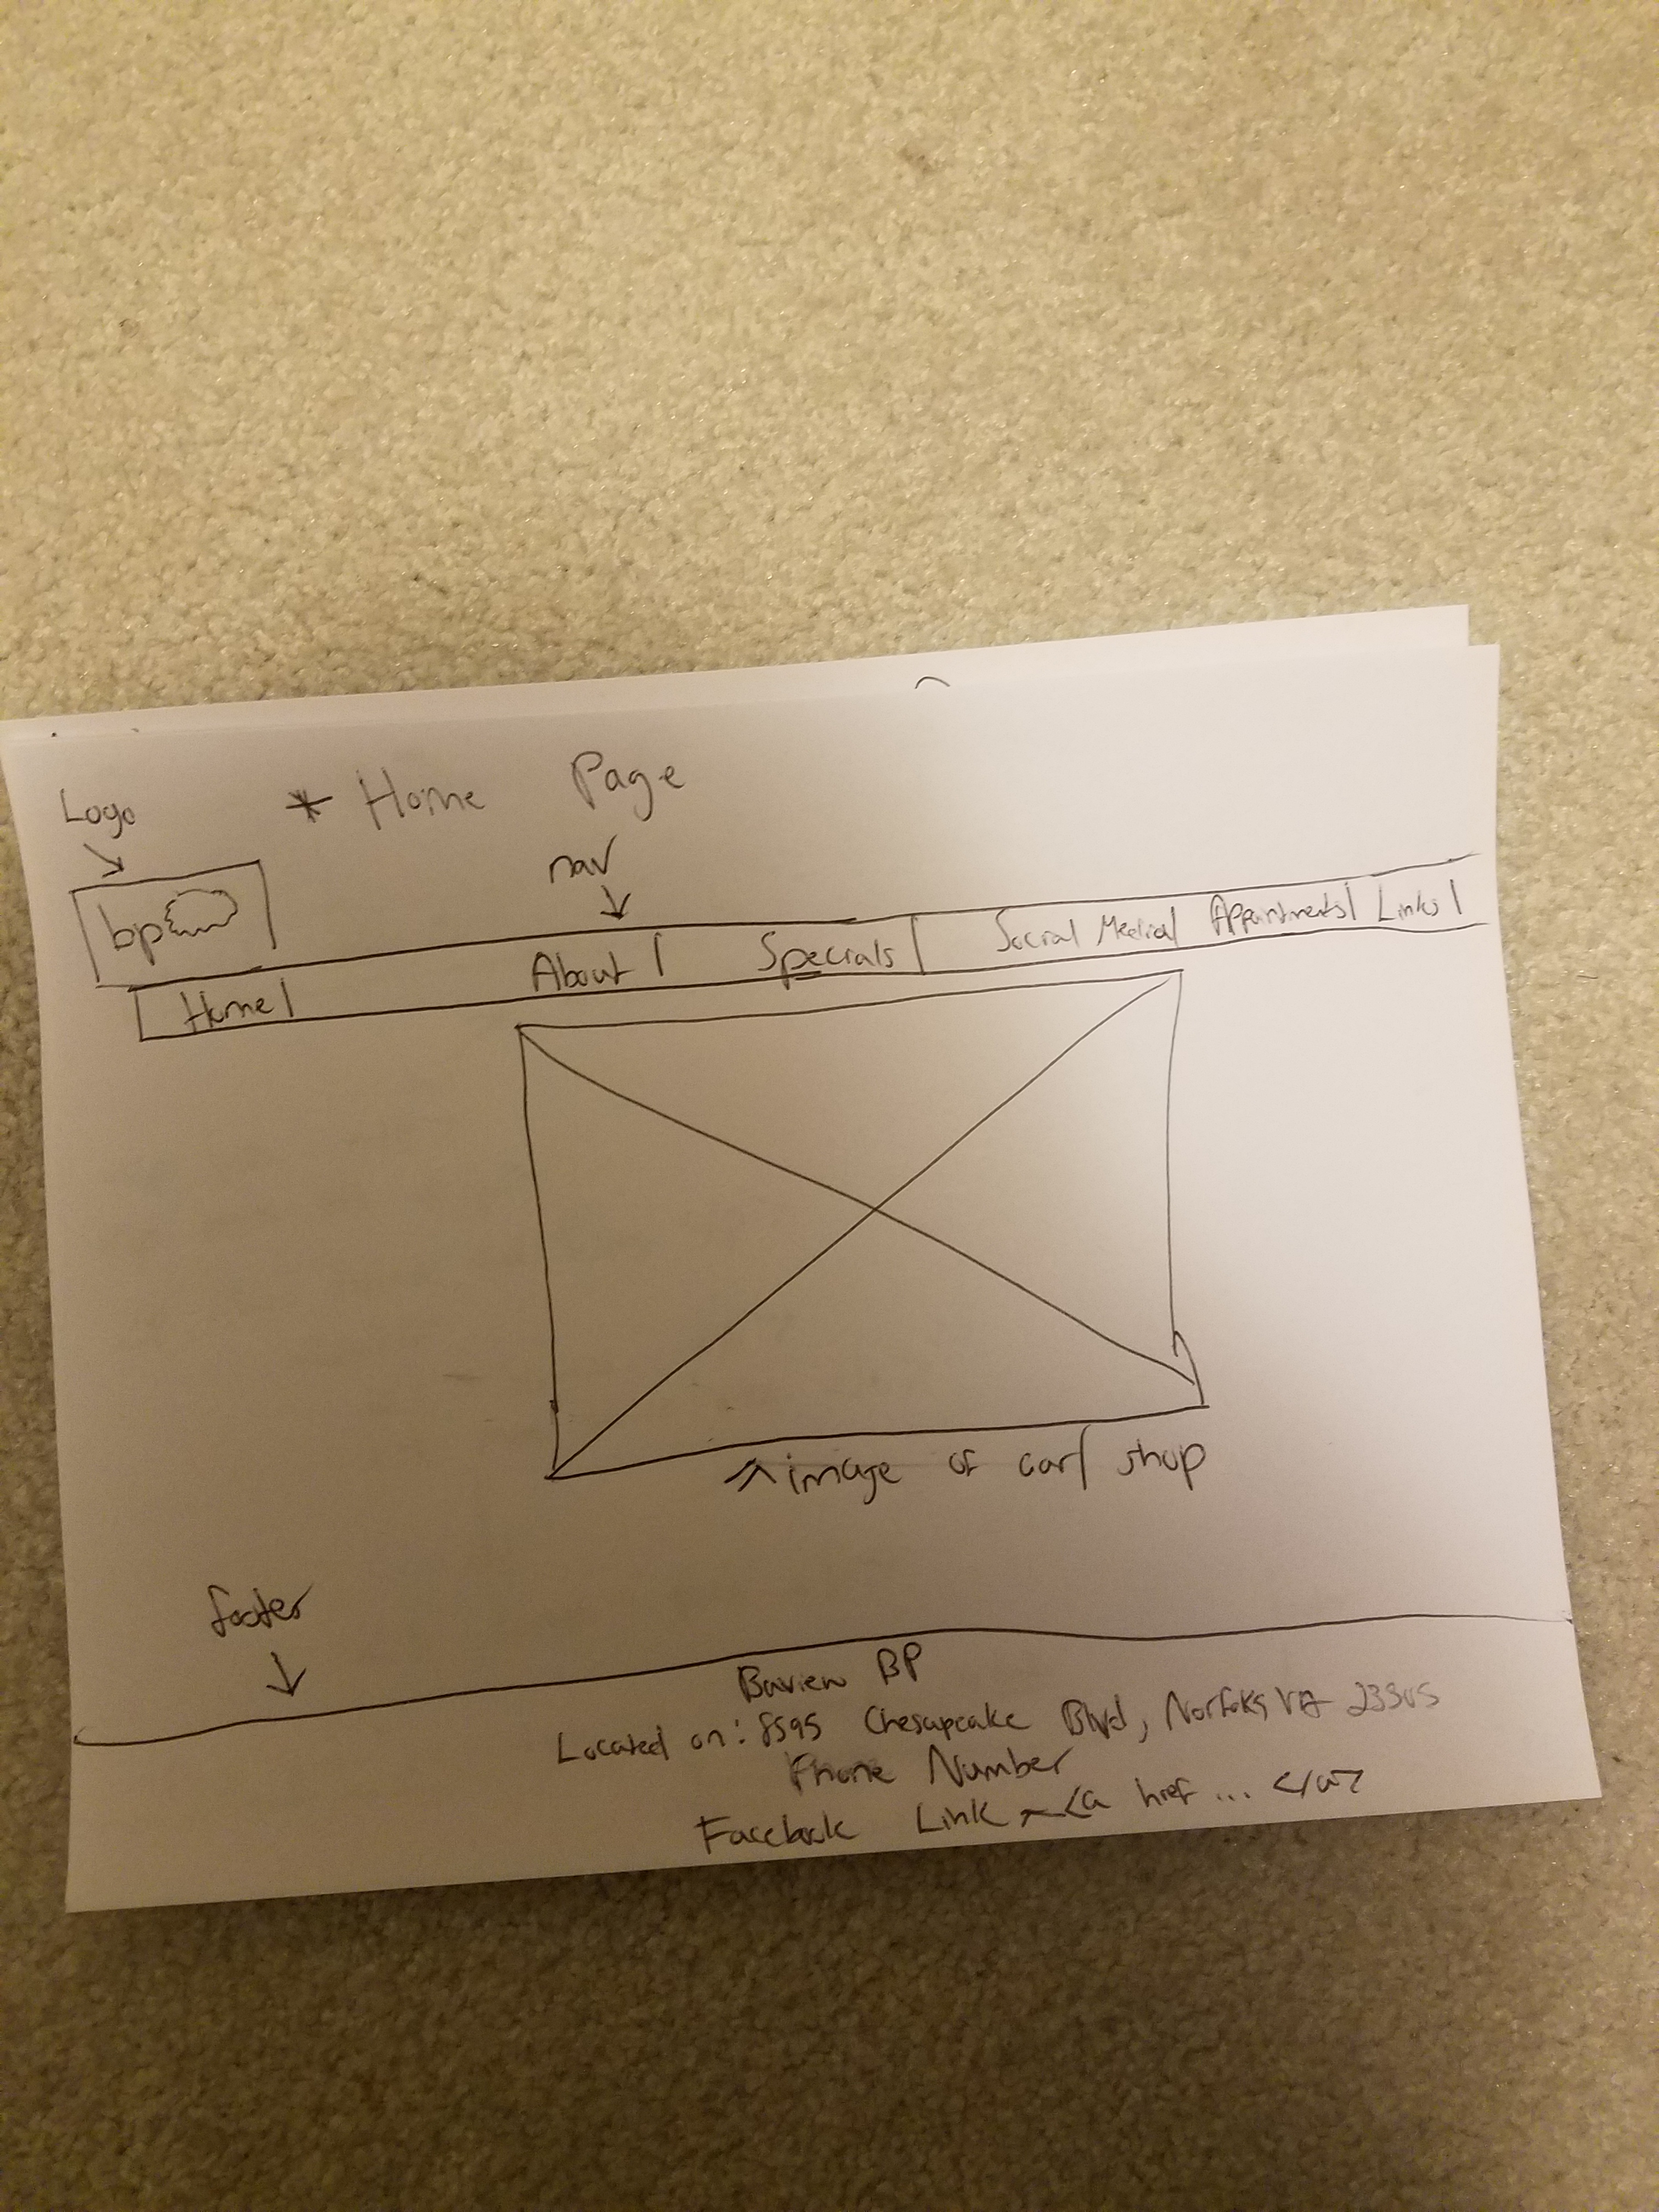 * Home Page
Logo
nav
bp
Home | About | Specials | Social Media | Appointments | Links |
^ image of car/ shop
footer
Bayview BP
Located on: 8595 Chesapeake Blvd, Norfolk, VA 23505
Phone Number
Facebook Link <a href ... </a>